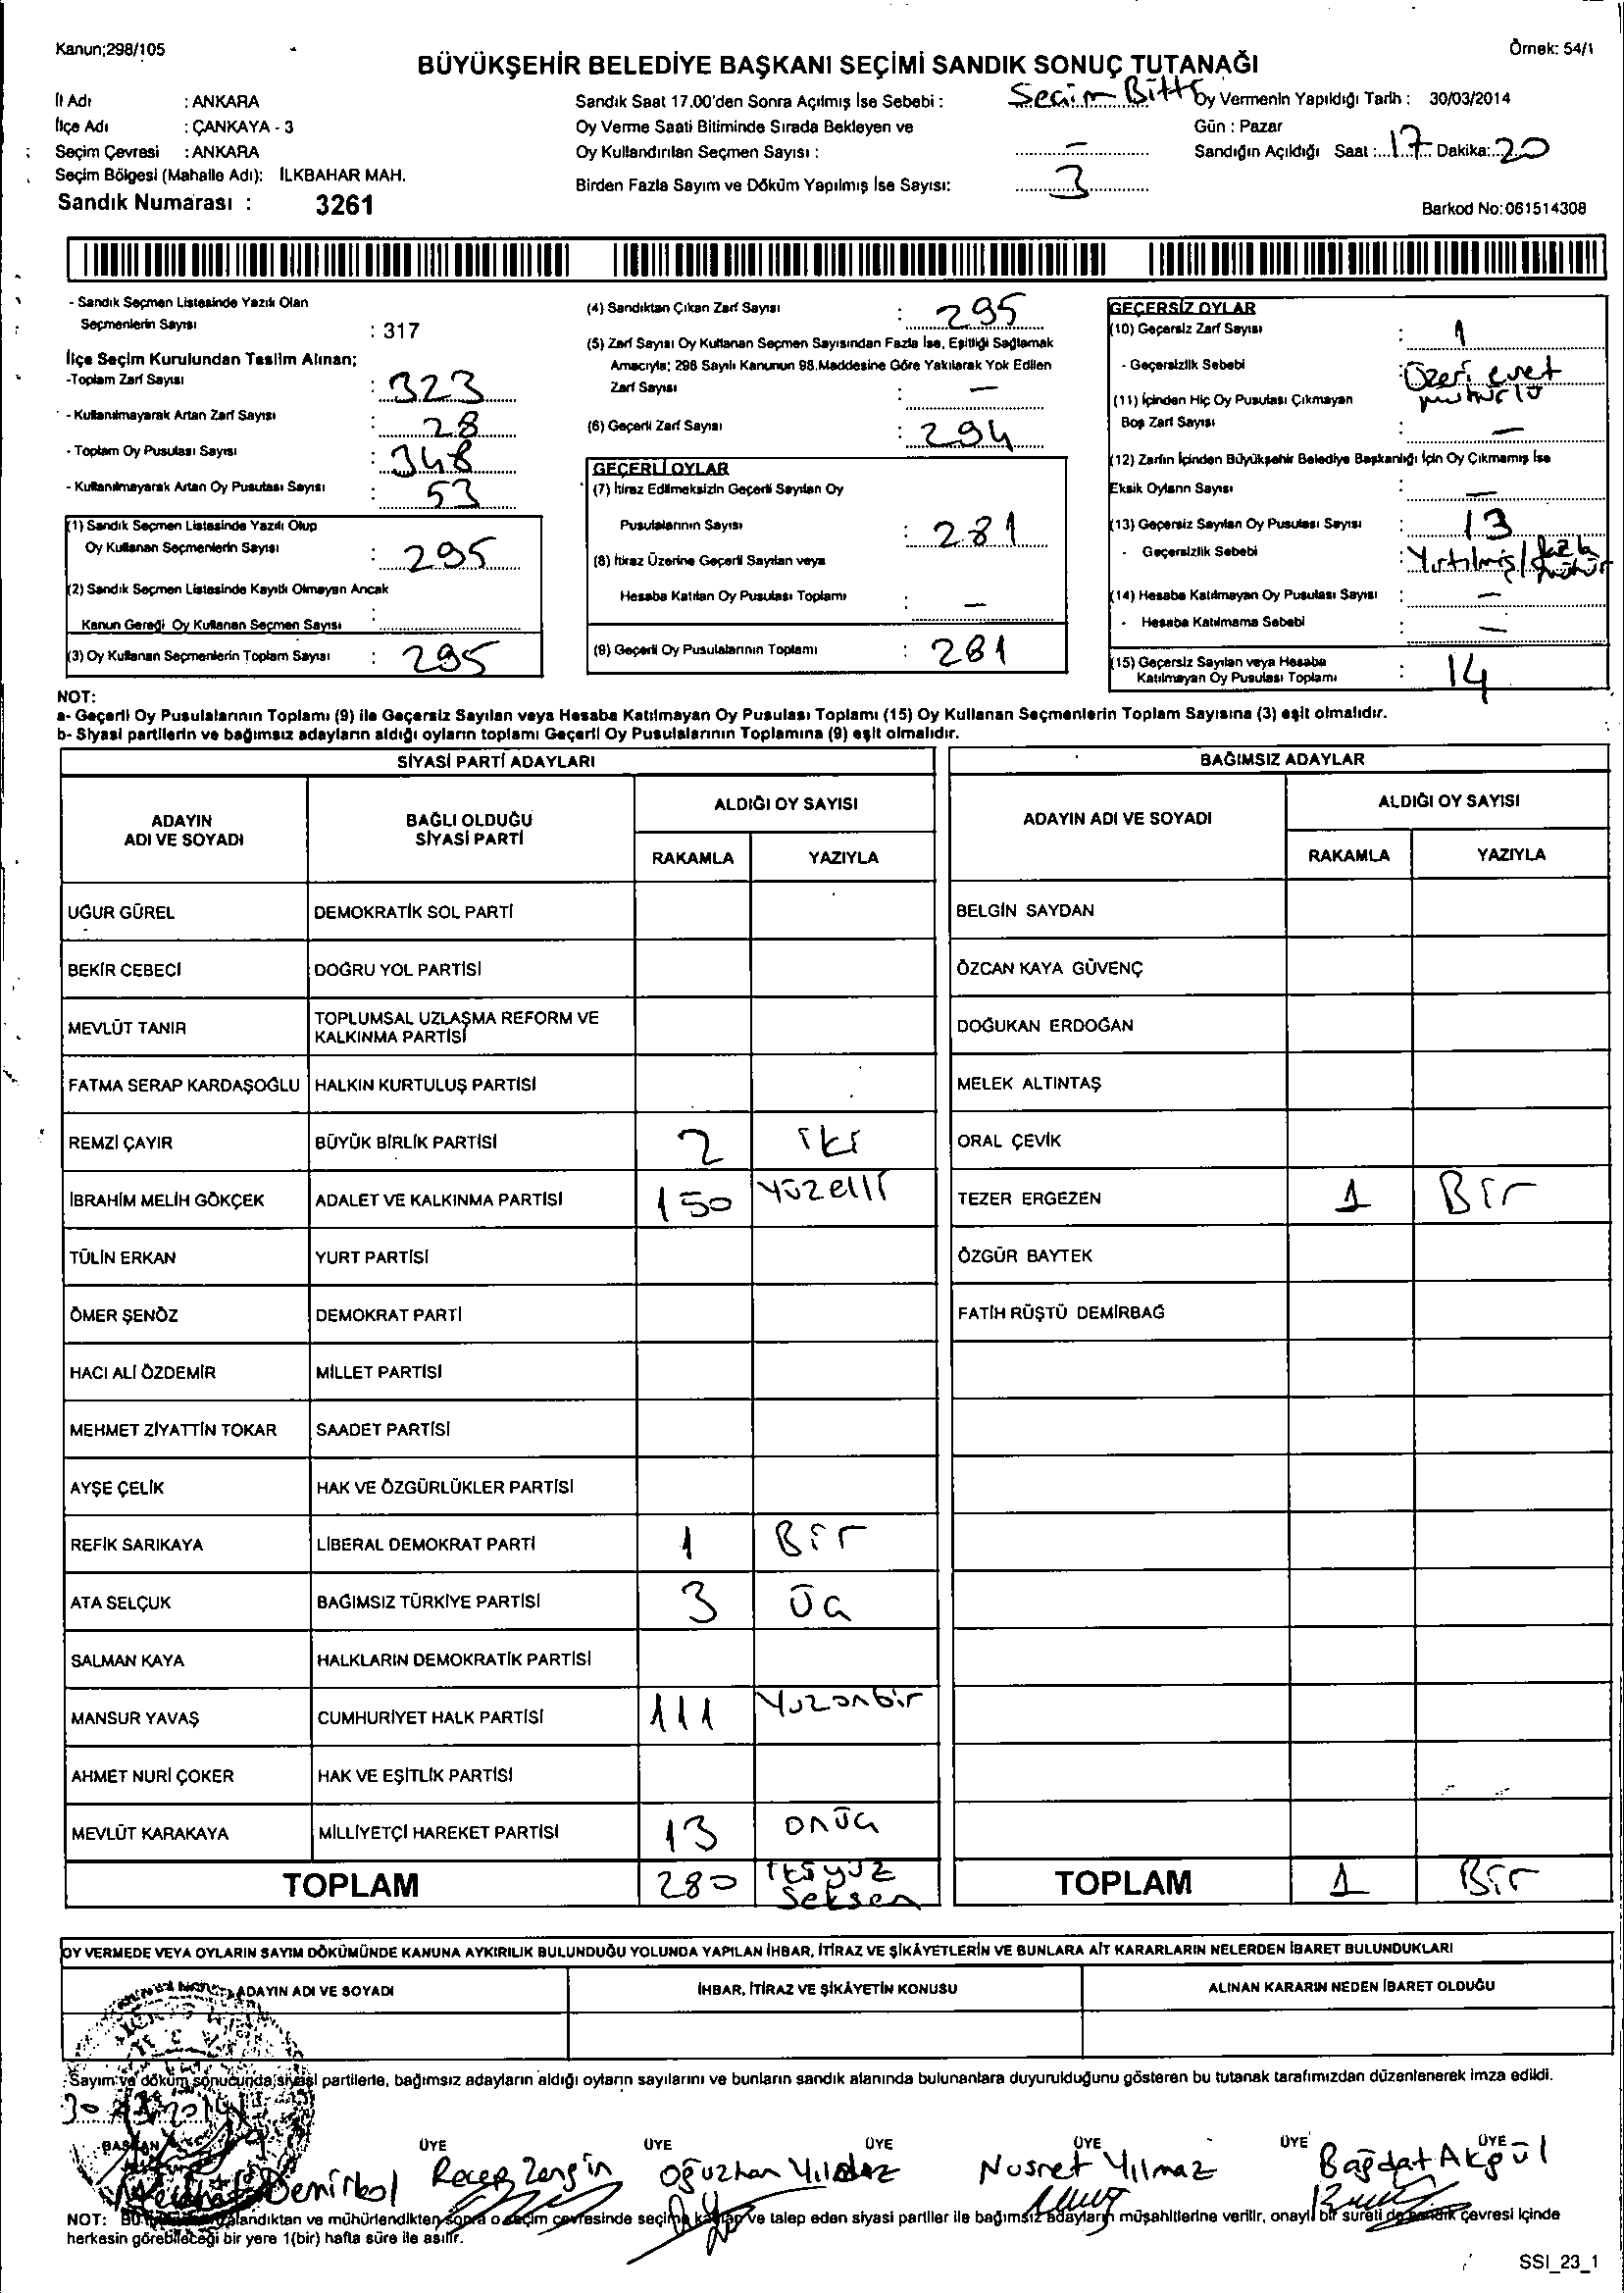 Kanun;298/105
Örnek: 54/1
BÜYÜKŞEHİR BELEDİYE BAŞKANI SEÇİMİ SANDIK SONUÇ TUTANAĞI
İl Adı : ANKARA
İlçe Adı : ÇANKAYA - 3
Seçim Çevresi : ANKARA
Seçim Bölgesi (Mahalle Adı): İLKBAHAR MAH.
Sandık Numarası : 3261
Sandık Saat 17.00'den Sonra Açılmış İse Sebebi : Seçim Bitti
Oy Verme Saati Bitiminde Sırada Bekleyen ve
Oy Kullandırılan Seçmen Sayısı : –
Birden Fazla Sayım ve Döküm Yapılmış İse Sayısı: 3
Oy Vermenin Yapıldığı Tarih : 30/03/2014
Gün : Pazar
Sandığın Açıldığı Saat : 17 Dakika: 20
Barkod No: 061514308
- Sandık Seçmen Listesinde Yazılı Olan
Seçmenlerin Sayısı : 317
İlçe Seçim Kurulundan Teslim Alınan;
-Toplam Zarf Sayısı : 323
- Kullanılmayarak Artan Zarf Sayısı : 28
- Toplam Oy Pusulası Sayısı : 348
- Kullanılmayarak Artan Oy Pusulası Sayısı : 53
(1) Sandık Seçmen Listesinde Yazılı Olup
Oy Kullanan Seçmenlerin Sayısı : 295
(2) Sandık Seçmen Listesinde Kayıtlı Olmayan Ancak
Kanun Gereği Oy Kullanan Seçmen Sayısı :
(3) Oy Kullanan Seçmenlerin Toplam Sayısı : 295
(4) Sandıktan Çıkan Zarf Sayısı : 295
(5) Zarf Sayısı Oy Kullanan Seçmen Sayısından Fazla İse, Eşitliği Sağlamak
Amacıyla; 298 Sayılı Kanunun 98.Maddesine Göre Yakılarak Yok Edilen
Zarf Sayısı : –
(6) Geçerli Zarf Sayısı : 294
GEÇERLİ OYLAR
(7) İtiraz Edilmeksizin Geçerli Sayılan Oy
Pusulalarının Sayısı : 281
(8) İtiraz Üzerine Geçerli Sayılan veya
Hesaba Katılan Oy Pusulası Toplamı : –
(9) Geçerli Oy Pusulalarının Toplamı : 281
GEÇERSİZ OYLAR
(10) Geçersiz Zarf Sayısı : 1
- Geçersizlik Sebebi : Üzeri evet
mühürlü
(11) İçinden Hiç Oy Pusulası Çıkmayan
Boş Zarf Sayısı : –
(12) Zarfın İçinden Büyükşehir Belediye Başkanlığı İçin Oy Çıkmamış İse
Eksik Oyların Sayısı : –
(13) Geçersiz Sayılan Oy Pusulası Sayısı : 13
- Geçersizlik Sebebi : Yırtılmış/fazla
mühür
(14) Hesaba Katılmayan Oy Pusulası Sayısı : –
- Hesaba Katılmama Sebebi : –
(15) Geçersiz Sayılan veya Hesaba
Katılmayan Oy Pusulası Toplamı : 14
NOT:
a- Geçerli Oy Pusulalarının Toplamı (9) ile Geçersiz Sayılan veya Hesaba Katılmayan Oy Pusulası Toplamı (15) Oy Kullanan Seçmenlerin Toplam Sayısına (3) eşit olmalıdır.
b- Siyasi partilerin ve bağımsız adayların aldığı oyların toplamı Geçerli Oy Pusulalarının Toplamına (9) eşit olmalıdır.
SİYASİ PARTİ ADAYLARI
ADAYIN
ADI VE SOYADI
BAĞLI OLDUĞU
SİYASİ PARTİ
ALDIĞI OY SAYISI
RAKAMLA YAZIYLA
UĞUR GÜREL DEMOKRATİK SOL PARTİ
BEKİR CEBECİ DOĞRU YOL PARTİSİ
MEVLÜT TANIR TOPLUMSAL UZLAŞMA REFORM VE
KALKINMA PARTİSİ
FATMA SERAP KARDAŞOĞLU HALKIN KURTULUŞ PARTİSİ
REMZİ ÇAYIR BÜYÜK BİRLİK PARTİSİ 2 iki
İBRAHİM MELİH GÖKÇEK ADALET VE KALKINMA PARTİSİ 150 Yüzelli
TÜLİN ERKAN YURT PARTİSİ
ÖMER ŞENÖZ DEMOKRAT PARTİ
HACI ALİ ÖZDEMİR MİLLET PARTİSİ
MEHMET ZİYATTİN TOKAR SAADET PARTİSİ
AYŞE ÇELİK HAK VE ÖZGÜRLÜKLER PARTİSİ
REFİK SARIKAYA LİBERAL DEMOKRAT PARTİ 1 Bir
ATA SELÇUK BAĞIMSIZ TÜRKİYE PARTİSİ 3 Üç
SALMAN KAYA HALKLARIN DEMOKRATİK PARTİSİ
MANSUR YAVAŞ CUMHURİYET HALK PARTİSİ 111 Yüzonbir
AHMET NURİ ÇOKER HAK VE EŞİTLİK PARTİSİ
MEVLÜT KARAKAYA MİLLİYETÇİ HAREKET PARTİSİ 13 onüç
TOPLAM 280 ikiyüz
seksen
BAĞIMSIZ ADAYLAR
ADAYIN ADI VE SOYADI
ALDIĞI OY SAYISI
RAKAMLA YAZIYLA
BELGİN SAYDAN
ÖZCAN KAYA GÜVENÇ
DOĞUKAN ERDOĞAN
MELEK ALTINTAŞ
ORAL ÇEVİK
TEZER ERGEZEN 1 Bir
ÖZGÜR BAYTEK
FATİH RÜŞTÜ DEMİRBAĞ
TOPLAM 1 Bir
OY VERMEDE VEYA OYLARIN SAYIM DÖKÜMÜNDE KANUNA AYKIRILIK BULUNDUĞU YOLUNDA YAPILAN İHBAR, İTİRAZ VE ŞİKÂYETLERİN VE BUNLARA AİT KARARLARIN NELERDEN İBARET BULUNDUKLARI
ADAYIN ADI VE SOYADI
İHBAR, İTİRAZ VE ŞİKÂYETİN KONUSU
ALINAN KARARIN NEDEN İBARET OLDUĞU
Sayım ve döküm sonucunda siyasi partilerle, bağımsız adayların aldığı oyların sayılarını ve bunların sandık alanında bulunanlara duyurulduğunu gösteren bu tutanak tarafımızdan düzenlenerek imza edildi.
BAŞKAN ÜYE ÜYE ÜYE ÜYE ÜYE ÜYE
Demirbol Recep Zengin Oğuzhan Yıldız Nusret Yılmaz Bağdat Akgül
NOT: Bu alandıktan ve mühürlendikten sonra o seçim çevresinde seçime katılan ve talep eden siyasi partiler ile bağımsız adayların müşahitlerine verilir, onaylı bir sureti de sandık çevresi içinde
herkesin görebileceği bir yere 1(bir) hafta süre ile asılır.
SSI_23_1